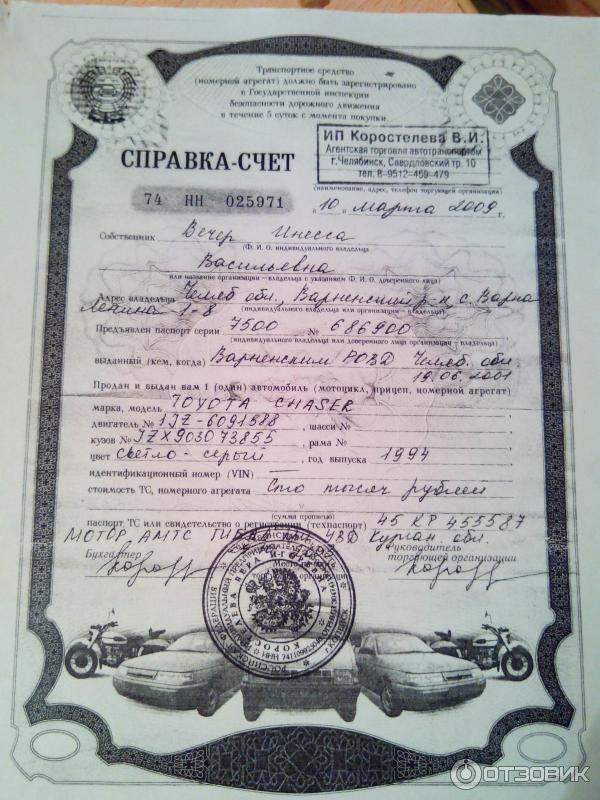 Транспортное средство
(номерной агрегат) должно быть зарегистрировано
в Государственной инспекции
безопасности дорожного движения
в течение 5 суток с момента покупки.
ИП Коростелева В.И.
Агентская торговля автотранспортом
г.Челябинск, Свердловский тр. 10
тел. 8-9512-459-479
СПРАВКА-СЧЕТ
(наименование, адрес, телефон торгующей организации)
74 НН 025971
« 10 » марта 2009 г.
Собственник Вечер Инесса
(Ф. И. О. индивидуального владельца)
Васильевна
или название организации – владельца с указанием Ф. И. О. доверенного лица)
Адрес владельца Челяб обл., Варненский р-н, с. Варна
Ленина 1-8
(индивидуального владельца или организации – владельца)
Предъявлен паспорт серии 7500 № 686900
(индивидуального владельца или доверенного лица организации – владельца)
выданный (кем, когда) Варненским РОВД Челяб. обл.
19.06.2001
Продан и выдан вам 1 (один) автомобиль (мотоцикл, прицеп, номерной агрегат)
марка, модель TOYOTA CHASER
двигатель № 1JZ-6091588 шасси №
кузов № JZX903073855 рама №
цвет светло-серый, год выпуска 1994
идентификационный номер (VIN) —
стоимость ТС, номерного агрегата Сто тысяч рублей
(сумма прописью)
паспорт ТС или свидетельство о регистрации (техпаспорт) 45 КР 455587
МОТОР АМТС ГИБДД УВД Курган. обл.
Бухгалтер
Руководитель
торгующей организации
РОССИЙСКАЯ ФЕДЕРАЦИЯ
ИНДИВИДУАЛЬНЫЙ ПРЕДПРИНИМАТЕЛЬ
КОРОСТЕЛЕВА ВЕРА
ОТЗОВИК